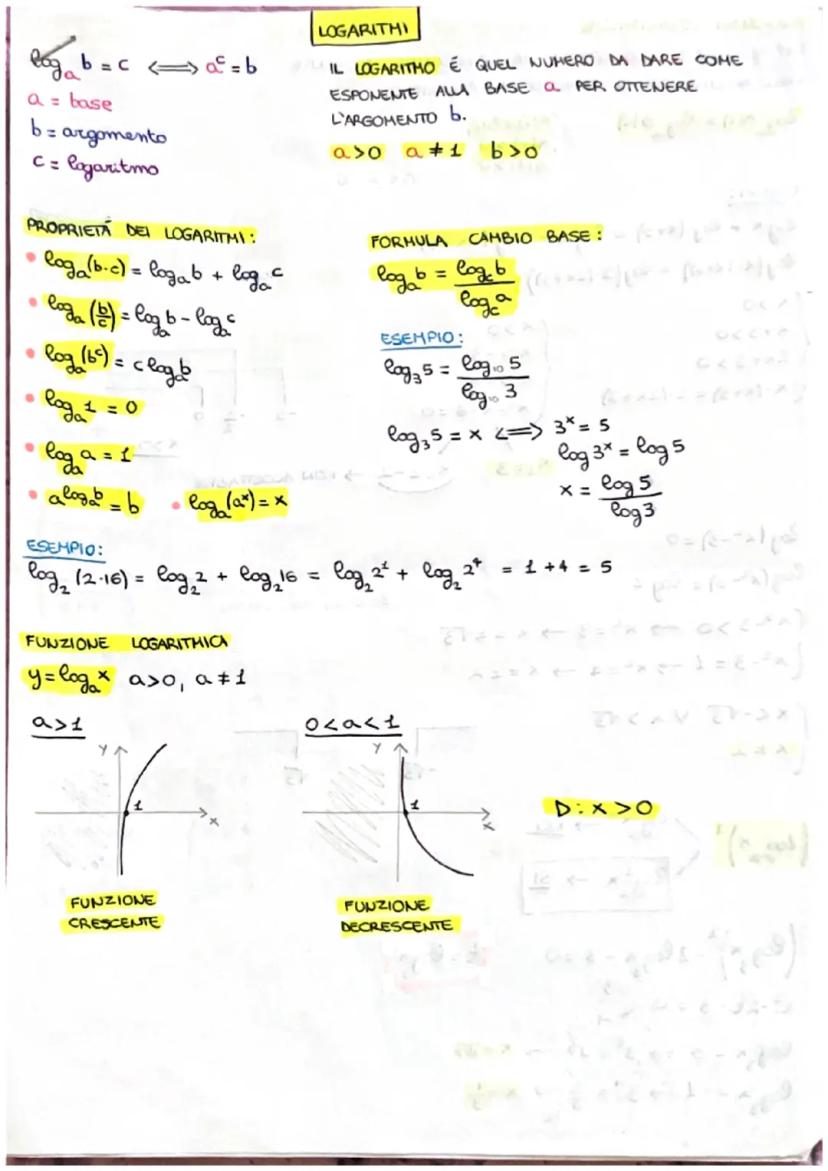 LOGARITMI
log_a b = c ⟺ a^c = b
a = base
b = argomento
c = logaritmo
IL LOGARITMO É QUEL NUMERO DA DARE COME
ESPONENTE ALLA BASE a PER OTTENERE
L'ARGOMENTO b.
a>0 a≠1 b>0
PROPRIETÁ DEI LOGARITMI:
• log_a (b·c) = log_a b + log_a c
• log_a (b/c) = log_a b - log_a c
• log_a (b^c) = c log_a b
• log_a 1 = 0
• log_a a = 1
• a^(log_a b) = b • log_a (a^x) = x
FORMULA CAMBIO BASE:
log_a b = log_c b / log_c a
ESEMPIO:
log_3 5 = log_10 5 / log_10 3
log_3 5 = x ⟺ 3^x = 5
log 3^x = log 5
x = log 5 / log 3
ESEMPIO:
log_2 (2·16) = log_2 2 + log_2 16 = log_2 2^1 + log_2 2^4 = 1+4 = 5
FUNZIONE LOGARITMICA
y = log_a x a>0, a≠1
a>1
Y
1
x
FUNZIONE
CRESCENTE
0<a<1
Y
1
x
FUNZIONE
DECRESCENTE
D: x>0